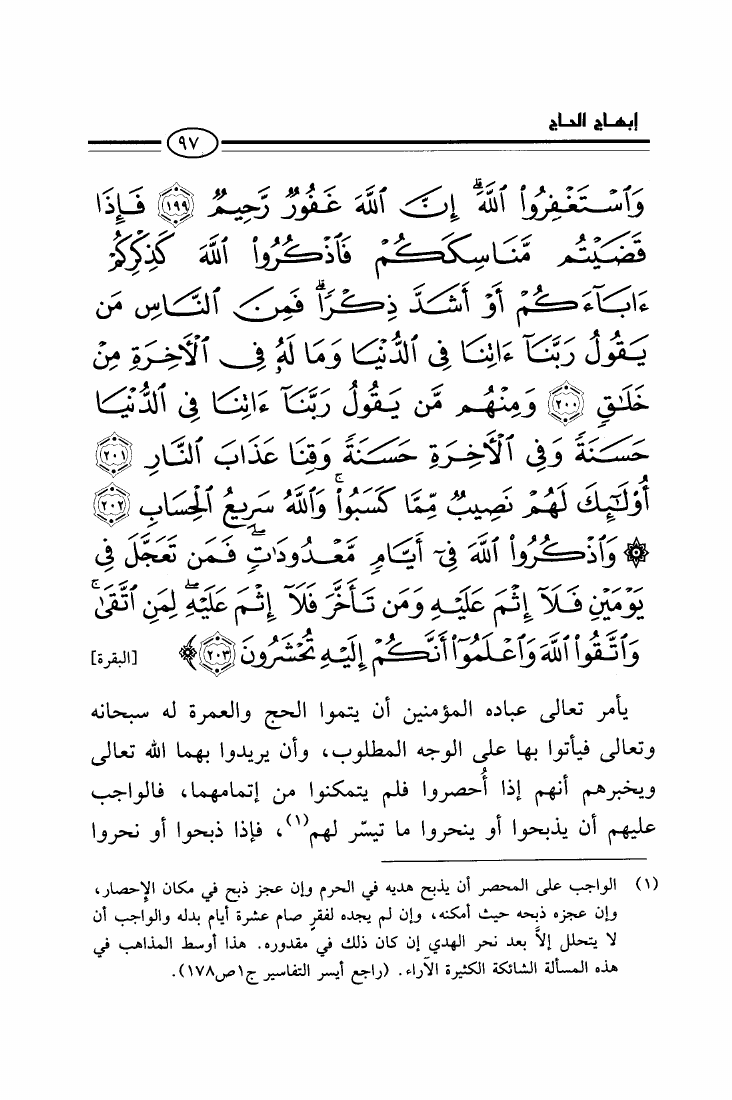 إبهاج الحاج
٩٧
وَٱسْتَغْفِرُوا۟ ٱللَّهَ ۚ إِنَّ ٱللَّهَ غَفُورٌ رَّحِيمٌ ١٩٩ فَإِذَا
قَضَيْتُم مَّنَاسِكَكُمْ فَٱذْكُرُوا۟ ٱللَّهَ كَذِكْرِكُمْ
ءَابَآءَكُمْ أَوْ أَشَدَّ ذِكْرًا ۗ فَمِنَ ٱلنَّاسِ مَن
يَقُولُ رَبَّنَآ ءَاتِنَا فِى ٱلدُّنْيَا وَمَا لَهُۥ فِى ٱلْأَخِرَةِ مِنْ
خَلَـٰقٍ ٢٠٠ وَمِنْهُم مَّن يَقُولُ رَبَّنَآ ءَاتِنَا فِى ٱلدُّنْيَا
حَسَنَةً وَفِى ٱلْأَخِرَةِ حَسَنَةً وَقِنَا عَذَابَ ٱلنَّارِ ٢٠١
أُو۟لَـٰٓئِكَ لَهُمْ نَصِيبٌ مِّمَّا كَسَبُوا۟ ۚ وَٱللَّهُ سَرِيعُ ٱلْحِسَابِ ٢٠٢
۞ وَٱذْكُرُوا۟ ٱللَّهَ فِىٓ أَيَّامٍ مَّعْدُودَٰتٍ ۚ فَمَن تَعَجَّلَ فِى
يَوْمَيْنِ فَلَآ إِثْمَ عَلَيْهِ وَمَن تَأَخَّرَ فَلَآ إِثْمَ عَلَيْهِ ۚ لِمَنِ ٱتَّقَىٰ ۗ
وَٱتَّقُوا۟ ٱللَّهَ وَٱعْلَمُوٓا۟ أَنَّكُمْ إِلَيْهِ تُحْشَرُونَ ٢٠٣ ﴾ [البقرة]
يأمر تعالى عباده المؤمنين أن يتموا الحج والعمرة له سبحانه
وتعالى فيأتوا بها على الوجه المطلوب، وأن يريدوا بهما الله تعالى
ويخبرهم أنهم إذا أُحصروا فلم يتمكنوا من إتمامهما، فالواجب
عليهم أن يذبحوا أو ينحروا ما تيسّر لهم(١)، فإذا ذبحوا أو نحروا
(١) الواجب على المحصر أن يذبح هديه في الحرم وإن عجز ذبح في مكان الإحصار،
وإن عجزه ذبحه حيث أمكنه، وإن لم يجده لفقرٍ صام عشرة أيام بدله والواجب أن
لا يتحلل إلاَّ بعد نحر الهدي إن كان ذلك في مقدوره. هذا أوسط المذاهب في
هذه المسألة الشائكة الكثيرة الآراء. (راجع أيسر التفاسير ج١ص١٧٨).